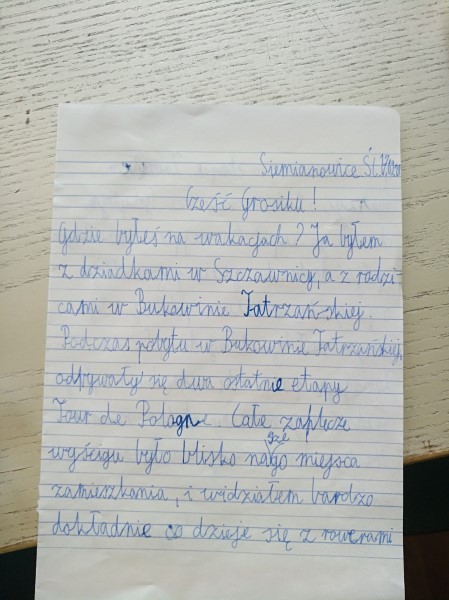 Siemianowice Śl.
Cześć Grosiku!
Gdzie byłeś na wakacjach? Ja byłem
z dziadkami w Szczawnicy, a z rodzi
cami w Bukowinie Tatrzańskiej.
Podczas pobytu w Bukowinie Tatrzańskiej,
odbywały się dwa ostatnie etapy
Tour de Pologne. Całe zaplecze
wyścigu było blisko naszego miejsca
zamieszkania, i widziałem bardzo
dokładnie co dzieje się z rowerami